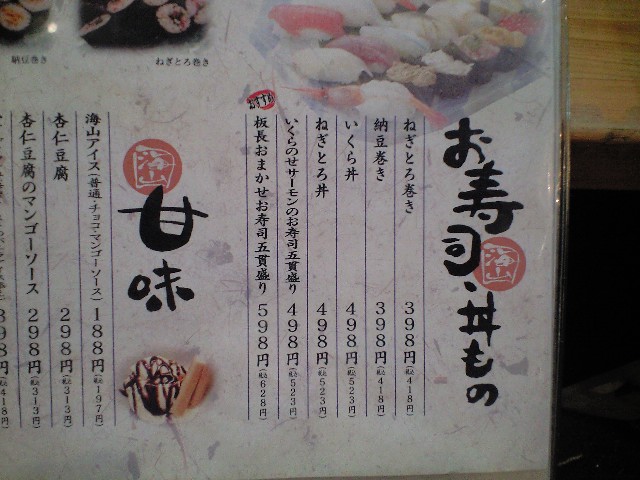 納豆巻き
ねぎとろ巻き
お寿司・丼もの
海山
ねぎとろ巻き 398円(税込418円)
納豆巻き 398円(税込418円)
いくら丼 498円(税込523円)
ねぎとろ丼 498円(税込523円)
いくらのせサーモンのお寿司五貫盛り 498円(税込523円)
おすすめ
板長おまかせお寿司五貫盛り 598円(税込628円)
海山
甘味
海山アイス(普通・チョコ・マンゴーソース) 188円(税込197円)
杏仁豆腐 298円(税込313円)
杏仁豆腐のマンゴーソース 298円(税込313円)